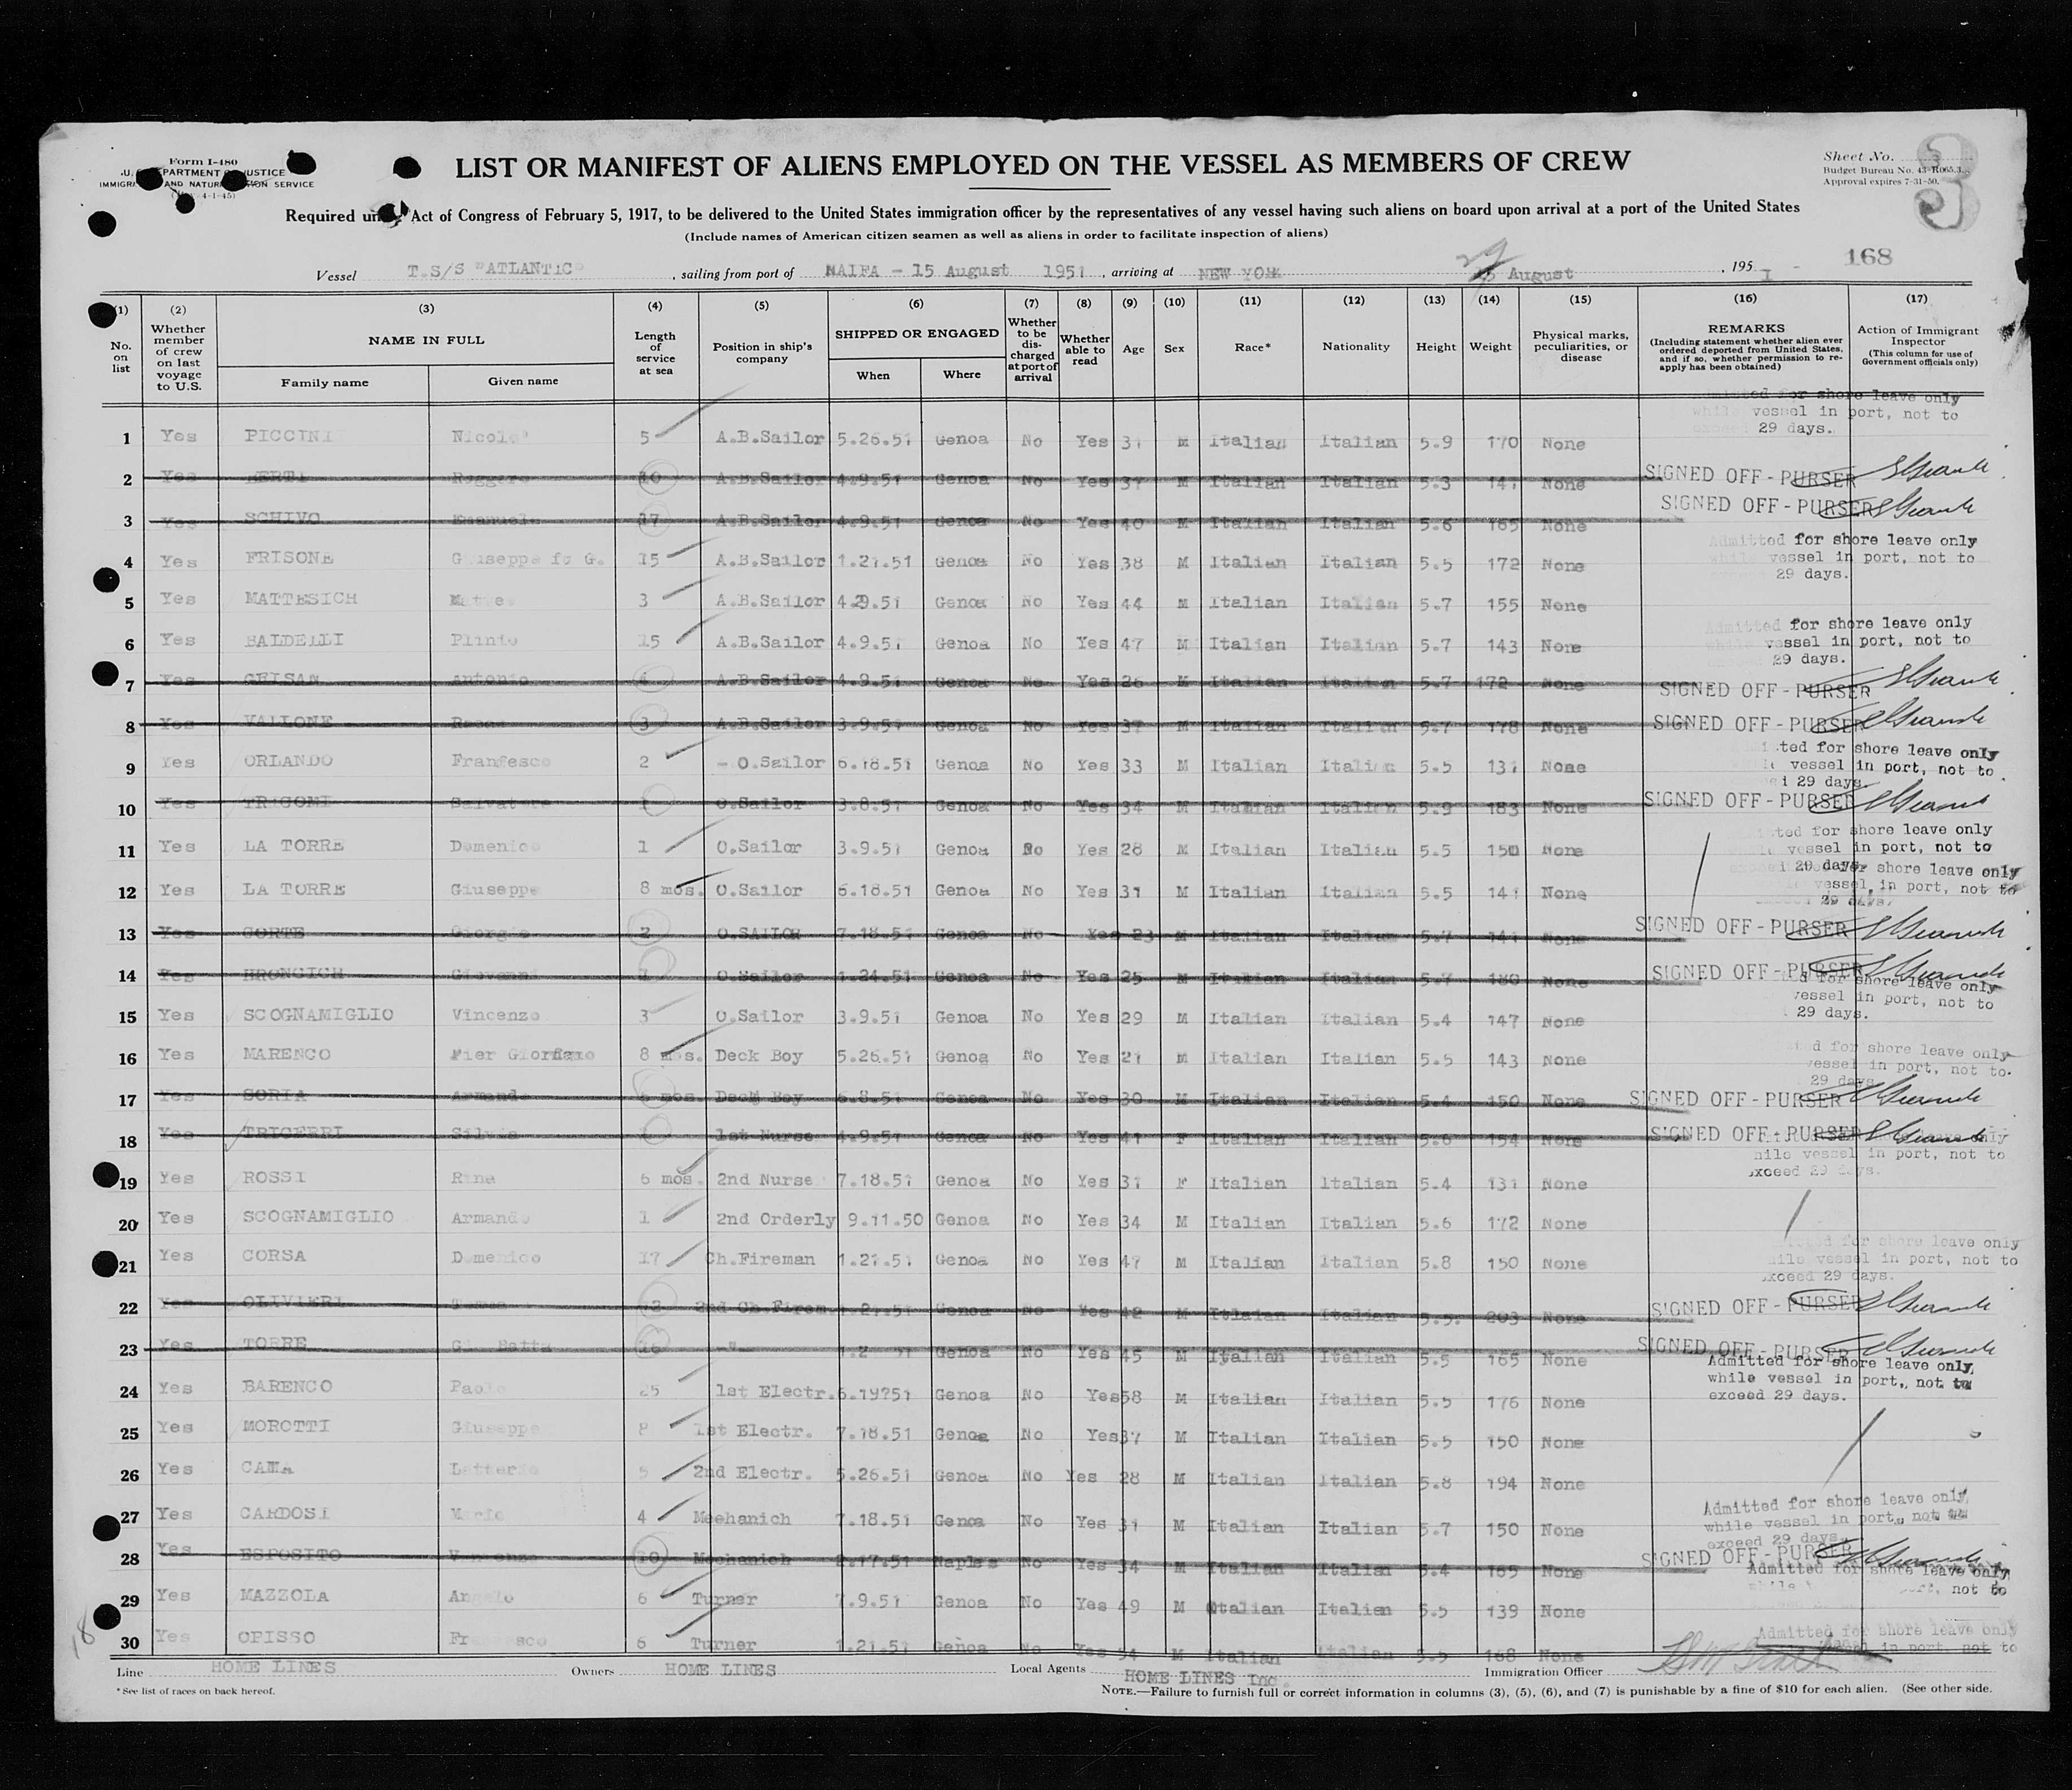 Form I-480
LIST OR MANIFEST OF ALIENS EMPLOYED ON THE VESSEL AS MEMBERS OF CREW
Sheet No. 3
Budget Bureau No. 43-R065.3.
Approval expires 7-31-50.
IMMIGR AND NATUR TION SERVICE
Required un Act of Congress of February 5, 1917, to be delivered to the United States immigration officer by the representatives of any vessel having such aliens on board upon arrival at a port of the United States
(Include names of American citizen seamen as well as aliens in order to facilitate inspection of aliens)
168
Vessel T.S/S "ATLANTIC" , sailing from port of HAIFA - 15 August 1951 , arriving at NEW YORK 29 August , 195 1
(1) No. on list
(2) Whether member of crew on last voyage to U.S.
(3) NAME IN FULL
Family name Given name
(4) Length of service at sea
(5) Position in ship's company
(6) SHIPPED OR ENGAGED
When Where
(7) Whether to be discharged at port of arrival
(8) Whether able to read
(9) Age
(10) Sex
(11) Race*
(12) Nationality
(13) Height
(14) Weight
(15) Physical marks, peculiarities, or disease
(16) REMARKS (Including statement whether alien ever ordered deported from United States, and if so, whether permission to re-apply has been obtained)
(17) Action of Immigrant Inspector (This column for use of Government officials only)
1 Yes PICCINI Nicola 5 A.B.Sailor 5.26.51 Genoa No Yes 31 M Italian Italian 5.9 170 None for shore leave only vessel in port, not to 29 days.
2 Yes A.B.Sailor 4.9.51 Genoa No Yes 37 M Italian Italian 5.3 141 None SIGNED OFF - PURSER
3 Yes SCHIVO Emanuele 17 A.B.Sailor 4.9.51 Genoa No Yes 40 M Italian Italian 5.6 165 None SIGNED OFF - PURSER
4 Yes FRISONE Giuseppe fo G. 15 A.B.Sailor 1.21.51 Genoa No Yes 38 M Italian Italian 5.5 172 None Admitted for shore leave only vessel in port, not to 29 days.
5 Yes MATTESICH Matteo 3 A.B.Sailor 4.9.51 Genoa No Yes 44 M Italian Italian 5.7 155 None
6 Yes BALDELLI Plinio 15 A.B.Sailor 4.9.51 Genoa No Yes 47 M Italian Italian 5.7 143 None Admitted for shore leave only vessel in port, not to 29 days.
7 Yes GEISAN Antonio 4 A.B.Sailor 4.9.51 Genoa No Yes 26 M Italian Italian 5.7 172 None SIGNED OFF - PURSER
8 Yes VALLONE 3 A.B.Sailor 3.9.51 Genoa No Yes 37 M Italian Italian 5.7 178 None SIGNED OFF - PURSER
9 Yes ORLANDO Franfesco 2 - O.Sailor 6.18.51 Genoa No Yes 33 M Italian Italian 5.5 131 None ted for shore leave only vessel in port, not to 29 days.
10 Yes TRIGOMI Salvatore 1 O.Sailor 3.8.51 Genoa No Yes 34 M Italian Italian 5.9 183 None SIGNED OFF - PURSER
11 Yes LA TORRE Domenico 1 O.Sailor 3.9.51 Genoa No Yes 28 M Italian Italian 5.5 150 None ted for shore leave only vessel in port, not to 29 days.
12 Yes LA TORRE Giuseppe 8 mos. O.Sailor 6.18.51 Genoa No Yes 31 M Italian Italian 5.5 141 None for shore leave only vessel in port, not to 29 days.
13 Yes CORTE Giorgio 2 O.SAILOR 7.18.51 Genoa No Yes 23 M Italian Italian 5.7 141 None SIGNED OFF - PURSER
14 Yes BRONCICH Giovanni 1 O.Sailor 1.24.51 Genoa No Yes 25 M Italian Italian 5.7 180 None SIGNED OFF - PURSER
15 Yes SCOGNAMIGLIO Vincenzo 3 O.Sailor 3.9.51 Genoa No Yes 29 M Italian Italian 5.4 147 None d for shore leave only vessel in port, not to 29 days.
16 Yes MARENCO Pier Giordano 8 mos. Deck Boy 5.26.51 Genoa No Yes 21 M Italian Italian 5.5 143 None d for shore leave only vessel in port, not to 29 days
17 Yes SORIA Armando mos Deck Boy 6.8.51 Genoa No Yes 30 M Italian Italian 5.4 150 None SIGNED OFF - PURSER
18 Yes TRICERRI Silvia 1st Nurse 4.9.51 Genoa No Yes 41 F Italian Italian 5.6 154 None SIGNED OFF - PURSER
19 Yes ROSSI Rina 6 mos. 2nd Nurse 7.18.51 Genoa No Yes 31 F Italian Italian 5.4 131 None vessel in port, not to exceed 29 days.
20 Yes SCOGNAMIGLIO Armando 1 2nd Orderly 9.11.50 Genoa No Yes 34 M Italian Italian 5.6 172 None
21 Yes CORSA Domenico 17 Ch.Fireman 1.21.51 Genoa No Yes 47 M Italian Italian 5.8 150 None for shore leave only vessel in port, not to exceed 29 days.
22 Yes OLIVIERI 2nd Ch.Firem. 1.21.51 Genoa No Yes 42 M Italian Italian 5.5. 203 None SIGNED OFF - PURSER
23 Yes TORRE Gi Batta 16 -"- Genoa No Yes 45 M Italian Italian 5.5 165 None SIGNED OFF - PURSER
24 Yes BARENCO Paolo 25 1st Electr. 6.19?51 Genoa No Yes 58 M Italian Italian 5.5 176 None Admitted for shore leave only, while vessel in port, not to exceed 29 days.
25 Yes MOROTTI Giuseppe 8 1st Electr. 7.18.51 Genoa No Yes 37 M Italian Italian 5.5 150 None
26 Yes CAMA Letterio 5 2nd Electr. 5.26.51 Genoa No Yes 28 M Italian Italian 5.8 194 None
27 Yes CARDOSI Mario 4 Mechanich 7.18.51 Genoa No Yes 31 M Italian Italian 5.7 150 None Admitted for shore leave only, while vessel in port, not to exceed 29 days.
28 Yes ESPOSITO Vincenzo 10 Mechanich 17.51 Naples No Yes 34 M Italian Italian 5.4 165 None SIGNED OFF - PURSER
29 Yes MAZZOLA Angelo 6 Turner 7.9.51 Genoa No Yes 49 M Italian Italian 5.5 139 None Admitted for shore leave only, not to
30 Yes OPISSO Francesco 6 Turner 1.21.51 Genoa No Yes 54 M Italian Italian 5.5 168 None Admitted for shore leave only vessel in port, not to
18
Line HOME LINES Owners HOME LINES Local Agents HOME LINES Inc. Immigration Officer
*See list of races on back hereof.
NOTE.—Failure to furnish full or correct information in columns (3), (5), (6), and (7) is punishable by a fine of $10 for each alien. (See other side.